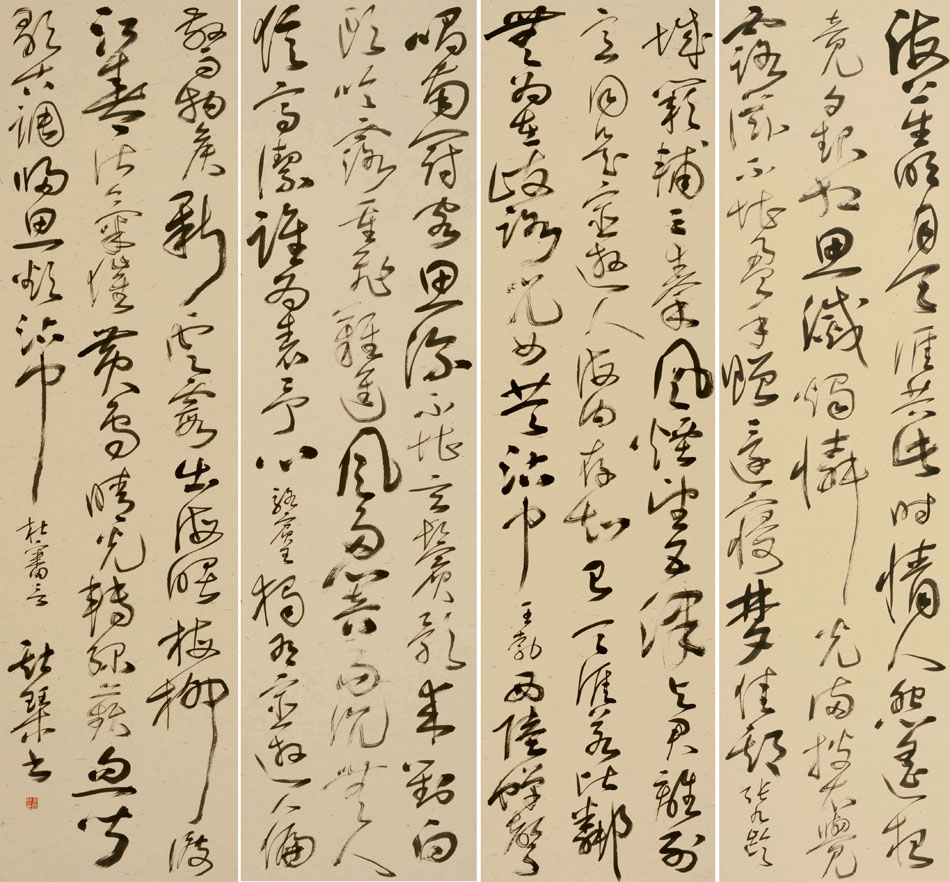 海上生明月天涯共此时情人怨遙夜
竟夕起相思滅燭憐光滿披衣覺
露滋不堪盈手贈還寢夢佳期張九齡
城闕輔三秦風煙望五津與君離別
意同是宦遊人海內存知己天涯若比鄰
無為在歧路兒女共沾巾王勃西陸蟬聲
唱南冠客思深不堪玄鬢影來對白
頭吟露重飛難進風多響易沉無人
信高潔誰為表予心駱賓王獨有宦遊人偏
驚物候新雲霞出海曙梅柳渡
江春淑氣催黃鳥晴光轉綠蘋忽聞
歌古調歸思欲沾巾杜審言琴書